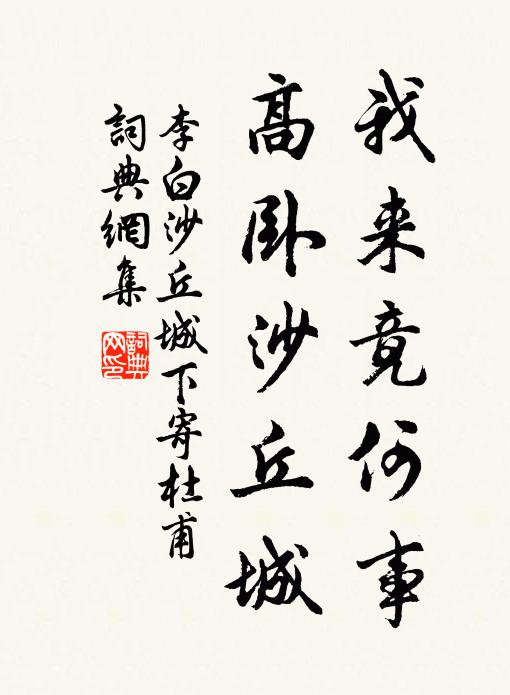 我来竟何事
高卧沙丘城
李白沙丘城下寄杜甫
詞典網集
詞典
网印